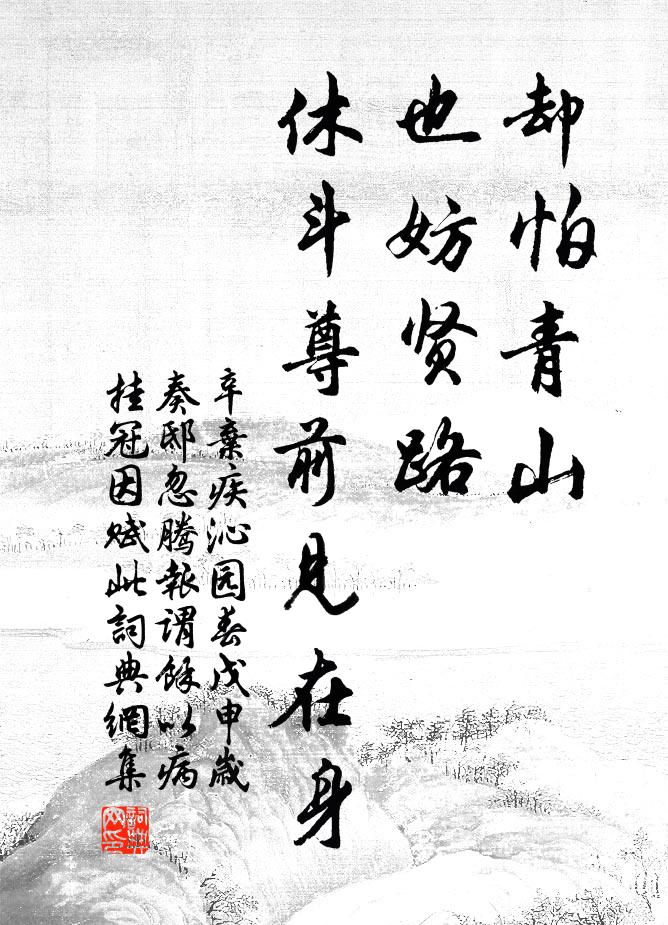 却怕青山
也妨贤路
休斗尊前见在身
辛棄疾沁园春戊申歲
奏邸忽騰報謂餘以病
挂冠因赋此詞典網集
詞典
网印